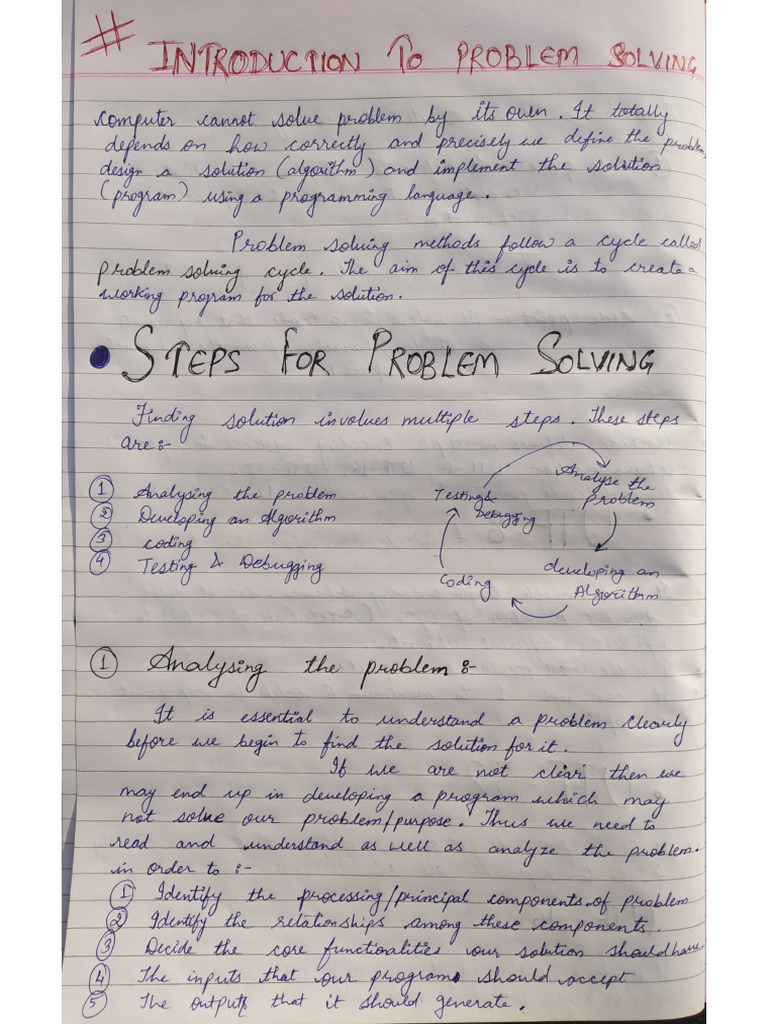 # INTRODUCTION TO PROBLEM SOLVING
Computer cannot solve problem by its own. It totally
depends on how correctly and precisely we define the problem,
design a solution (algorithm) and implement the solution
(program) using a programming language.
Problem solving methods follow a cycle called
problem solving cycle. The aim of this cycle is to create a
working program for the solution.
• STEPS FOR PROBLEM SOLVING
Finding solution involves multiple steps. These steps
are :-
① Analysing the problem
② Developing an Algorithm
③ coding
④ Testing & Debugging
Analyse the
problem
developing an
Algorithm
Coding
Testing &
Debugging
① Analysing the problem :-
It is essential to understand a problem clearly
before we begin to find the solution for it.
If we are not clear then we
may end up in developing a program which may
not solve our problem/purpose. Thus we need to
read and understand as well as analyze the problem.
in order to :-
① Identify the processing/principal components of problem
② Identify the relationships among these components.
③ Decide the core functionalities our solution should have
④ The inputs that our program should accept
⑤ The output that it should generate.